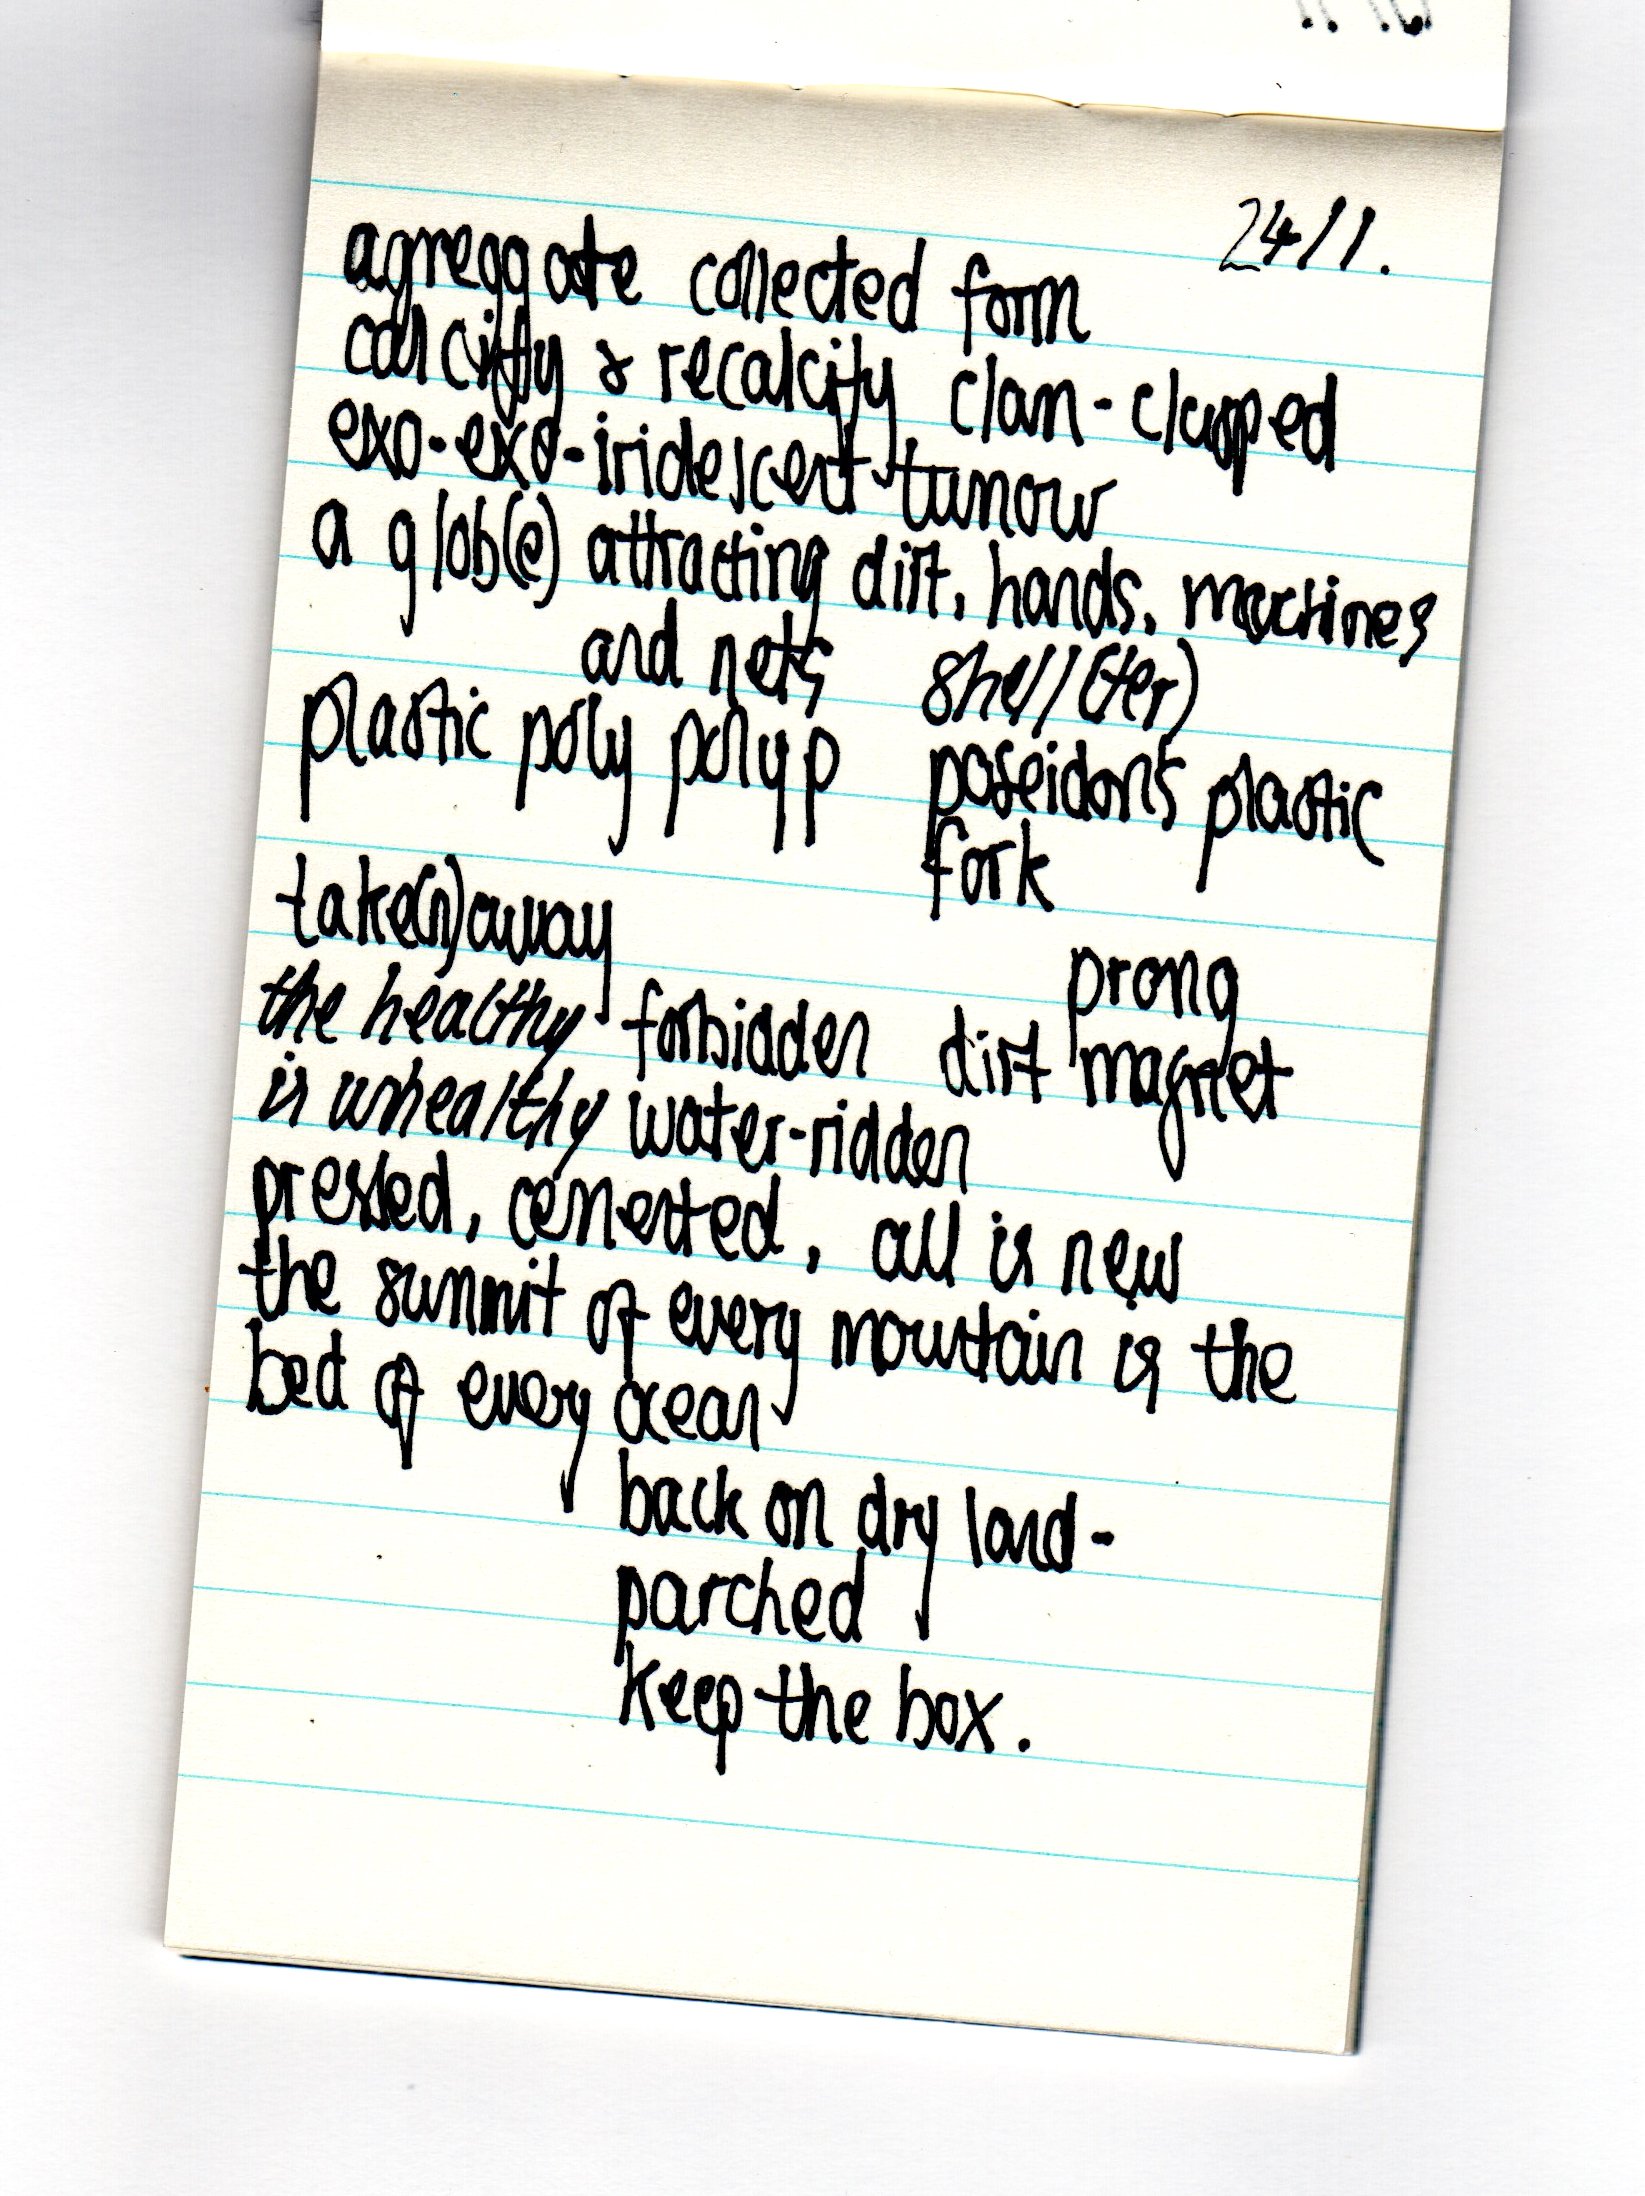 24/1.
agreggate collected form
calcify & recalcify clam-clasped
exo-exo-iridescent-tumour
a glob(e) attracting dirt, hands, machines
and nets shell(ter)
plastic poly polyp poseidon's plastic
fork
take(n)away
prong
the healthy forbidden dirt magnet
is unhealthy water-ridden
pressed, cemented, all is new
the summit of every mountain is the
bed of every ocean
back on dry land -
parched
keep the box.